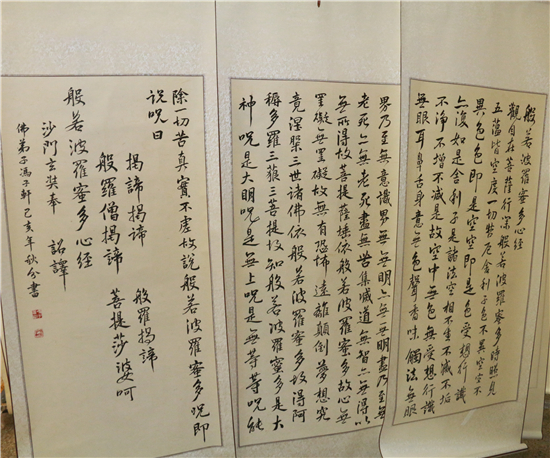 般若波羅蜜多心經
觀自在菩薩行深般若波羅蜜多時照見
五蘊皆空度一切苦厄舍利子色不異空空不
異色色即是空空即是色受想行識
亦復如是舍利子是諸法空相不生不滅不垢
不淨不增不減是故空中無色無受想行識
無眼耳鼻舌身意無色聲香味觸法無眼
界乃至無意識界無無明亦無無明盡乃至無
老死亦無老死盡無苦集滅道無智亦無得以
無所得故菩提薩埵依般若波羅蜜多故心無
罣礙無罣礙故無有恐怖遠離顛倒夢想究
竟涅槃三世諸佛依般若波羅蜜多故得阿
耨多羅三藐三菩提故知般若波羅蜜多是大
神呪是大明呪是無上呪是無等等呪能
除一切苦真實不虛故說般若波羅蜜多呪即
說呪曰
揭諦揭諦 般羅揭諦
般羅僧揭諦 菩提莎婆呵
般若波羅蜜多心經
沙門玄奘奉 詔譯
佛弟子馮子軒己亥年秋分書